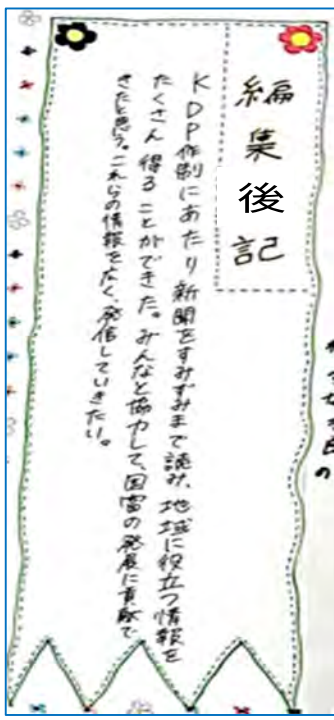 編集後記
KDP作制にあたり新聞をすみずみまで読み、地域に役立つ情報を
たくさん得ることができた。みんなと協力して、国富の発展に貢献で
きたと思う。これらの情報を広く、発信していきたい。